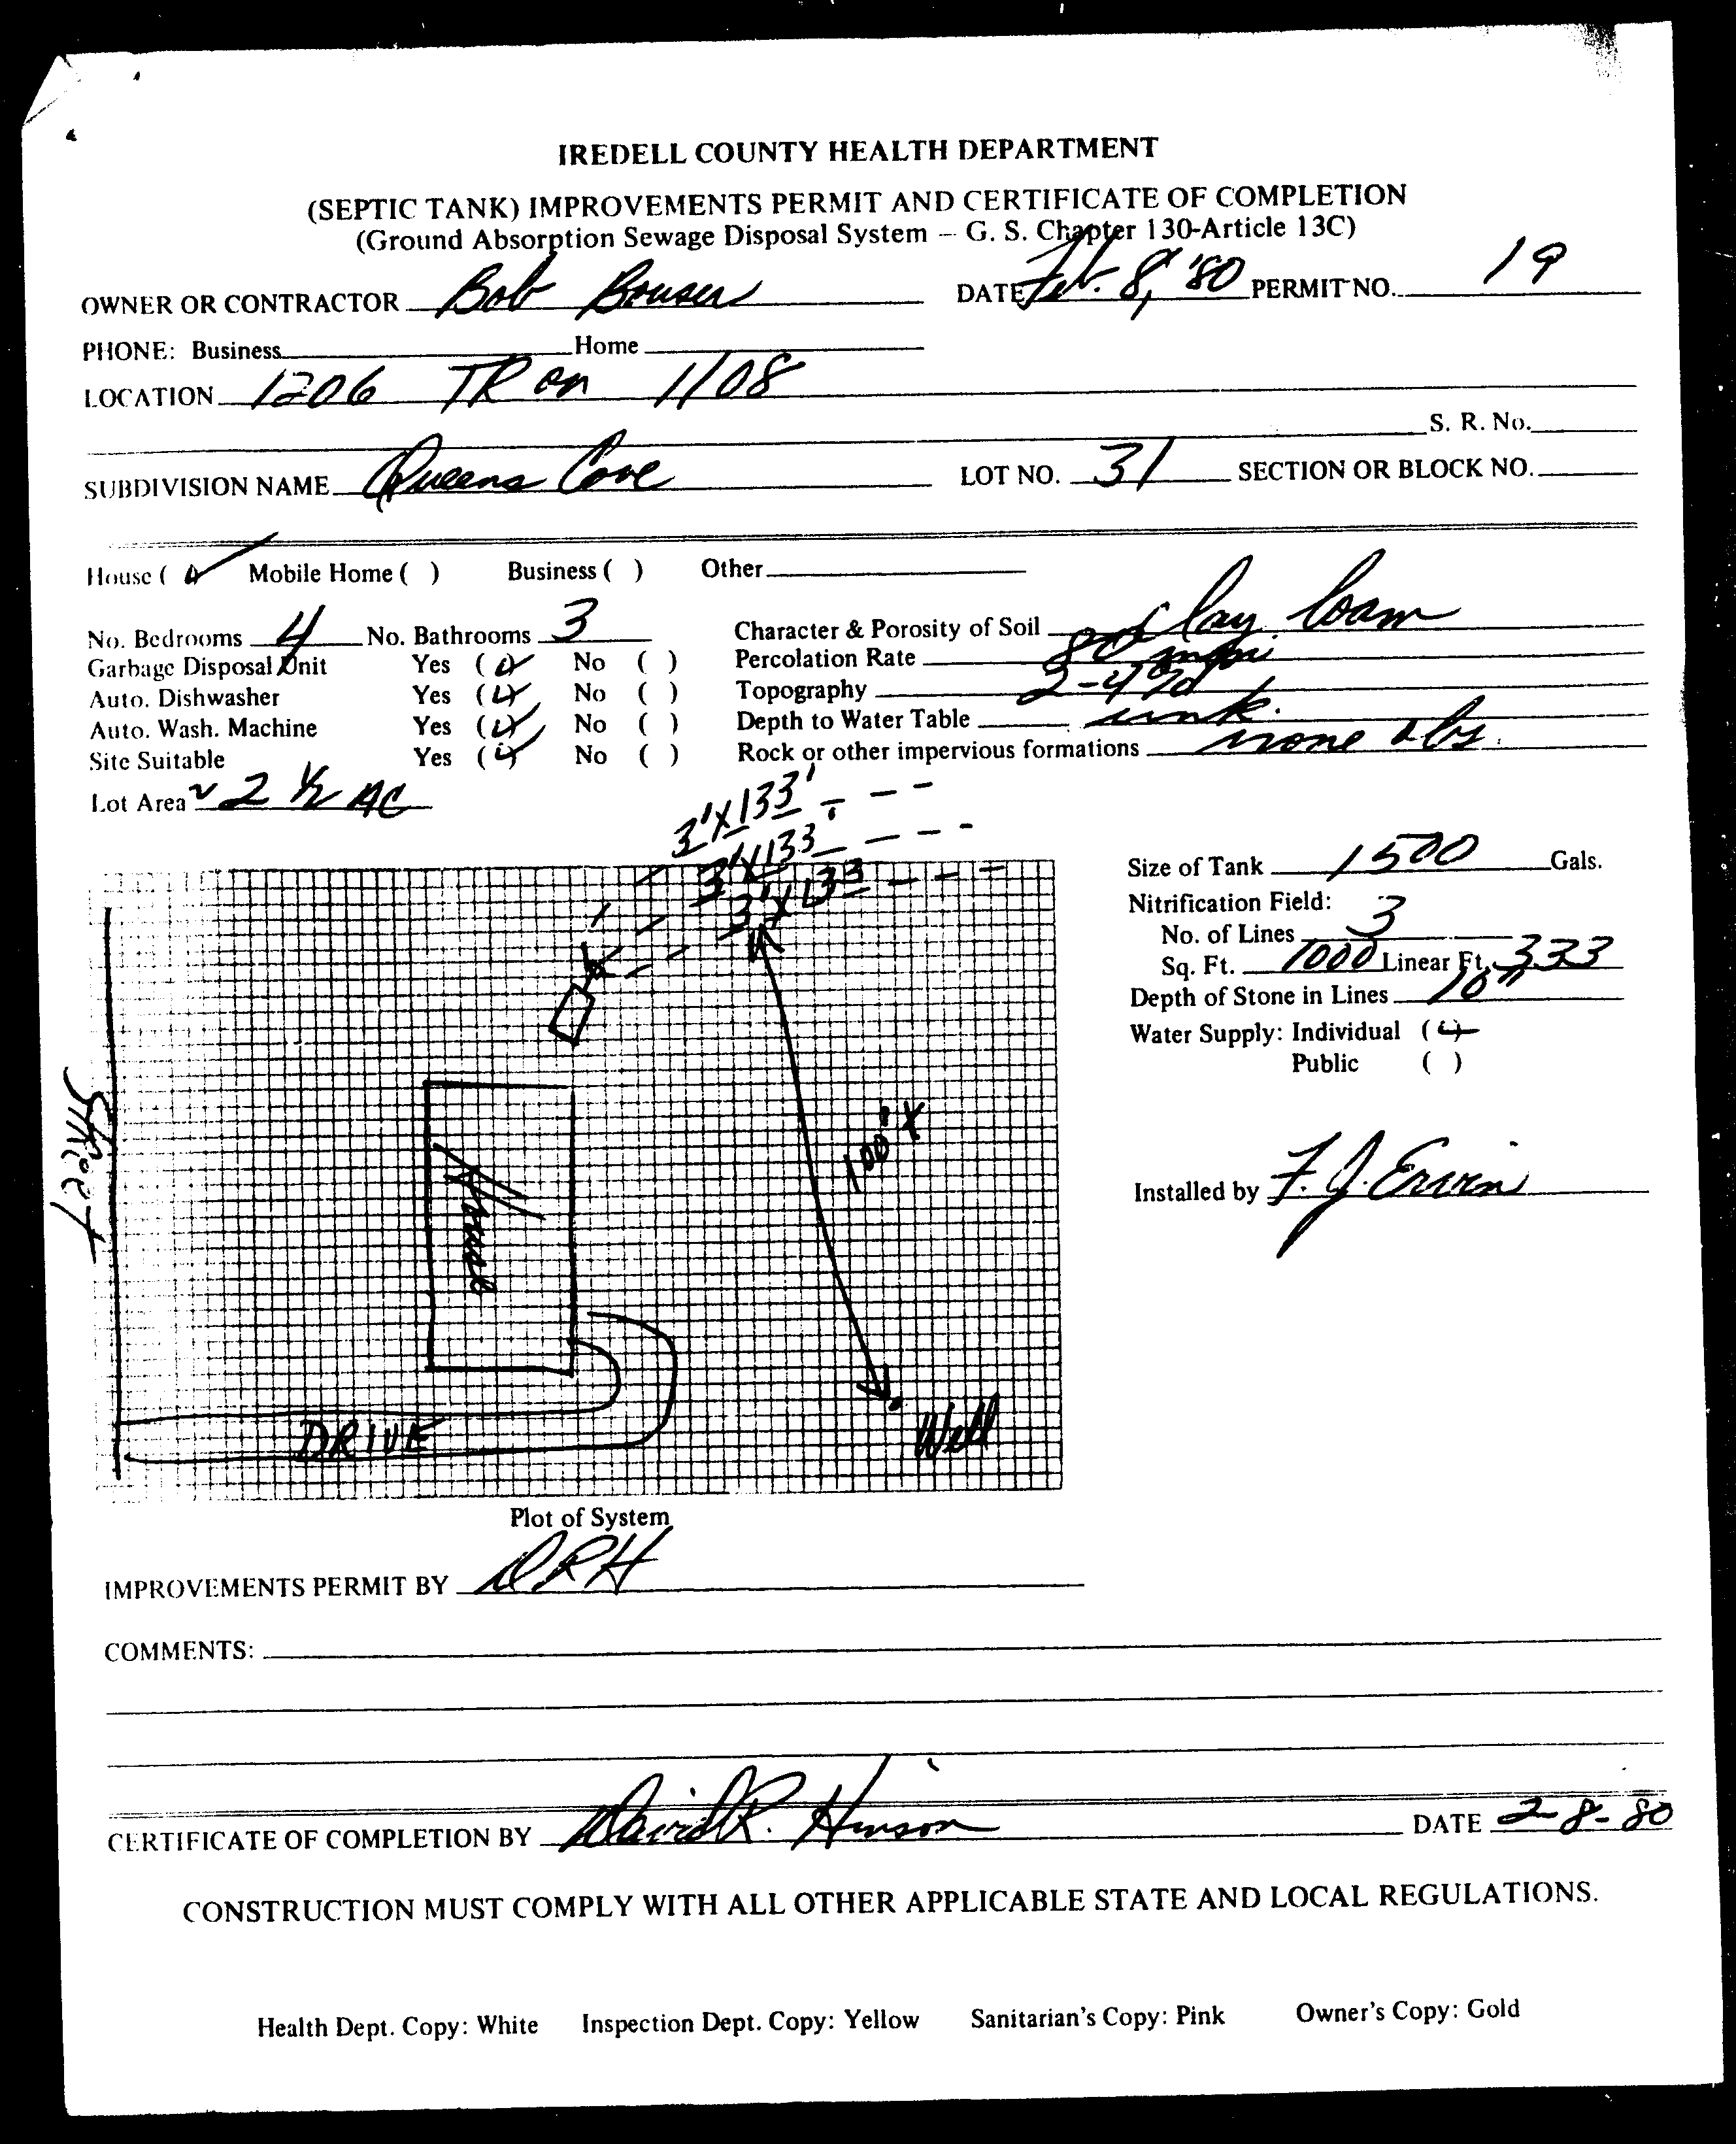 IREDELL COUNTY HEALTH DEPARTMENT
(SEPTIC TANK) IMPROVEMENTS PERMIT AND CERTIFICATE OF COMPLETION
(Ground Absorption Sewage Disposal System – G. S. Chapter 130-Article 13C)
OWNER OR CONTRACTOR Bob Bouser DATE Feb. 8, '80 PERMIT NO. 19
PHONE: Business Home
LOCATION 1206 TR on 1108
S. R. No.
SUBDIVISION NAME Queens Cove LOT NO. 31 SECTION OR BLOCK NO.
House ( ) Mobile Home ( ) Business ( ) Other
No. Bedrooms 4 No. Bathrooms 3 Character & Porosity of Soil clay loam
Garbage Disposal Unit Yes ( ) No ( ) Percolation Rate 80 mpi
Auto. Dishwasher Yes ( ) No ( ) Topography 2-4%
Auto. Wash. Machine Yes ( ) No ( ) Depth to Water Table unk.
Site Suitable Yes ( ) No ( ) Rock or other impervious formations none obs.
Lot Area ~ 2 ½ AC
3'X133'
3'X133
3'X133
Size of Tank 1500 Gals.
Nitrification Field:
No. of Lines 3
Sq. Ft. 1000 Linear Ft. 333
Depth of Stone in Lines 10"
Water Supply: Individual ( )
Public ( )
Street
House
100'+
Installed by F. J. Ervin
DRIVE
Well
Plot of System
IMPROVEMENTS PERMIT BY DRH
COMMENTS:
CERTIFICATE OF COMPLETION BY David R. Hinson DATE 2-8-80
CONSTRUCTION MUST COMPLY WITH ALL OTHER APPLICABLE STATE AND LOCAL REGULATIONS.
Health Dept. Copy: White Inspection Dept. Copy: Yellow Sanitarian's Copy: Pink Owner's Copy: Gold